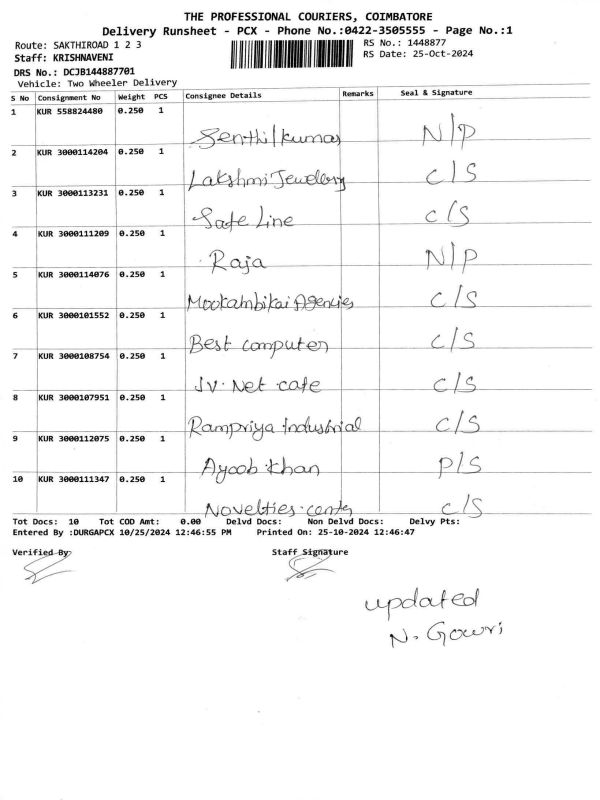 THE PROFESSIONAL COURIERS, COIMBATORE
Delivery Runsheet - PCX - Phone No.:0422-3505555 - Page No.:1
Route: SAKTHIROAD 1 2 3 RS No.: 1448877
Staff: KRISHNAVENI RS Date: 25-Oct-2024
DRS No.: DCJB144887701
Vehicle: Two Wheeler Delivery
S No Consignment No Weight PCS Consignee Details Remarks Seal & Signature
1 KUR 558824480 0.250 1
Senthilkumar N/P
2 KUR 3000114204 0.250 1
Lakshmi Jewellery C/S
3 KUR 3000113231 0.250 1
Safe Line C/S
4 KUR 3000111209 0.250 1
Raja N/P
5 KUR 3000114076 0.250 1
Mookambikai Agencies C/S
6 KUR 3000101552 0.250 1
Best computer C/S
7 KUR 3000108754 0.250 1
JV. Net cafe C/S
8 KUR 3000107951 0.250 1
Rampriya Industrial C/S
9 KUR 3000112075 0.250 1
Ayoob khan P/S
10 KUR 3000111347 0.250 1
Novelties center C/S
Tot Docs: 10 Tot COD Amt: 0.00 Delvd Docs: Non Delvd Docs: Delvy Pts:
Entered By :DURGAPCX 10/25/2024 12:46:55 PM Printed On: 25-10-2024 12:46:47
Verified By Staff Signature
updated
N. Gowri